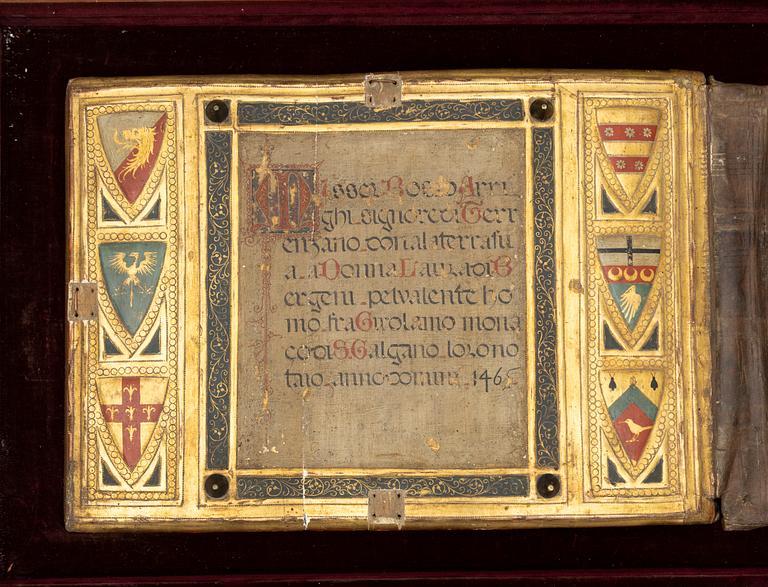 Misser Bosso Arri
ghi signore di Terr
enzano dona la terra su
a a Donna Laura di B
ergeni pel valente ho
mo fra Girolamo mona
co di S Galgano loro no
taio anno